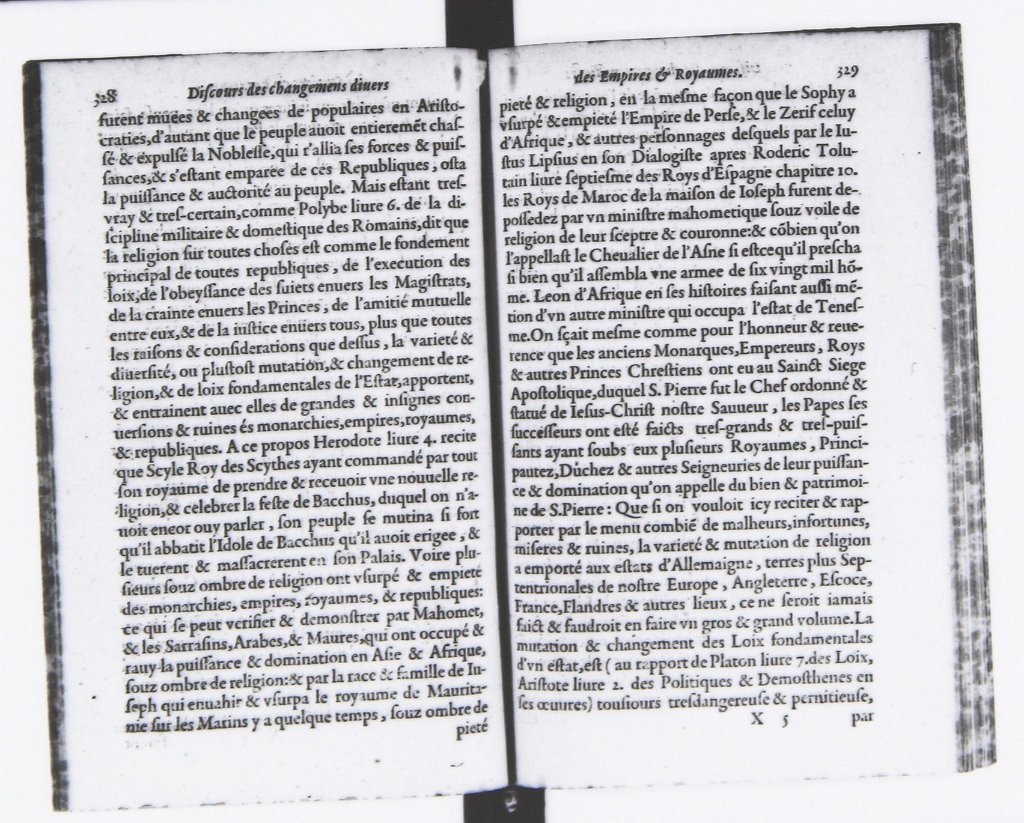 328 Diſcours des changemens diuers
furent muées & changées de populaires en Ariſto-
craties,d'autant que le peuple auoit entieremẽt chaſ-
ſé & expulſé la Nobleſſe,qui r'allia ſes forces & puiſ-
ſances,& s'eſtant emparée de ces Republiques, oſta
la puiſſance & auctorité au peuple. Mais eſtant treſ-
vray & treſ-certain,comme Polybe liure 6. de la di-
ſcipline militaire & domeſtique des Romains,dit que
la religion ſur toutes choſes eſt comme le fondement
principal de toutes republiques, de l'execution des
loix,de l'obeyſſance des ſuiets enuers les Magiſtrats,
de la crainte enuers les Princes, de l'amitié mutuelle
entre eux,& de la iuſtice enuers tous, plus que toutes
les raiſons & conſiderations que deſſus, la varieté &
diuerſité, ou pluſtoſt mutation,& changement de re-
ligion,& de loix fondamentales de l'Eſtat,apportent,
& entrainent auec elles de grandes & inſignes con-
uerſions & ruines és monarchies,empires,royaumes,
& republiques. A ce propos Herodote liure 4. recite
que Scyle Roy des Scythes ayant commandé par tout
ſon royaume de prendre & receuoir vne nouuelle re-
ligion,& celebrer la feſte de Bacchus, duquel on n'a-
uoit encor ouy parler, ſon peuple ſe mutina ſi fort
qu'il abbatit l'Idole de Bacchus qu'il auoit erigee, &
le tuerent & maſſacrerent en ſon Palais. Voire plu-
ſieurs ſouz ombre de religion ont vſurpé & empieté
des monarchies, empires, royaumes, & republiques:
ce qui ſe peut verifier & demonſtrer par Mahomet,
& les Sarraſins,Arabes,& Maures,qui ont occupé &
rauy la puiſſance & domination en Aſie & Afrique,
ſouz ombre de religion:& par la race & famille de Iu-
ſeph qui enuahir & vſurpa le royaume de Maurita-
nie ſur les Marins y a quelque temps, ſouz ombre de
pieté
des Empires & Royaumes. 329
pieté & religion, en la meſme façon que le Sophy a
vſurpé & empieté l'Empire de Perſe,& le Zerif celuy
d'Afrique, & autres perſonnages deſquels par le Iu-
ſtus Lipſius en ſon Dialogiſte apres Roderic Tolu-
tain liure ſeptieſme des Roys d'Eſpagne chapitre 10.
les Roys de Maroc de la maiſon de Ioſeph furent de-
poſſedez par vn miniſtre mahometique ſouz voile de
religion de leur ſceptre & couronne:& cõbien qu'on
l'appellaſt le Cheualier de l'Aſne ſi eſtce qu'il preſcha
ſi bien qu'il aſſembla vne armee de ſix vingt mil hõ-
me. Leon d'Afrique en ſes hiſtoires faiſant auſſi mẽ-
tion d'vn autre miniſtre qui occupa l'eſtat de Teneſ-
me.On ſçait meſme comme pour l'honneur & reue-
rence que les anciens Monarques,Empereurs, Roys
& autres Princes Chreſtiens ont eu au Sainct Siege
Apoſtolique,duquel S. Pierre fut le Chef ordonné &
ſtatué de Ieſus-Chriſt noſtre Sauueur, les Papes ſes
ſucceſſeurs ont eſté faicts treſ-grands & treſ-puiſ-
ſants ayant ſoubs eux pluſieurs Royaumes, Princi-
pautez,Duchez & autres Seigneuries de leur puiſſan-
ce & domination qu'on appelle du bien & patrimoi-
ne de S.Pierre: Que ſi on vouloit icy reciter & rap-
porter par le menu combié de malheurs,infortunes,
miſeres & ruines, la varieté & mutation de religion
a emporté aux eſtats d'Allemaigne, terres plus Sep-
tentrionales de noſtre Europe, Angleterre, Eſcoce,
France,Flandres & autres lieux, ce ne ſeroit iamais
faict & faudroit en faire vn gros & grand volume.La
mutation & changement des Loix fondamentales
d'vn eſtat,eſt ( au rapport de Platon liure 7.des Loix,
Ariſtote liure 2. des Politiques & Demoſthenes en
ſes œuures) touſiours treſdangereuſe & pernitieuſe,
X 5 par